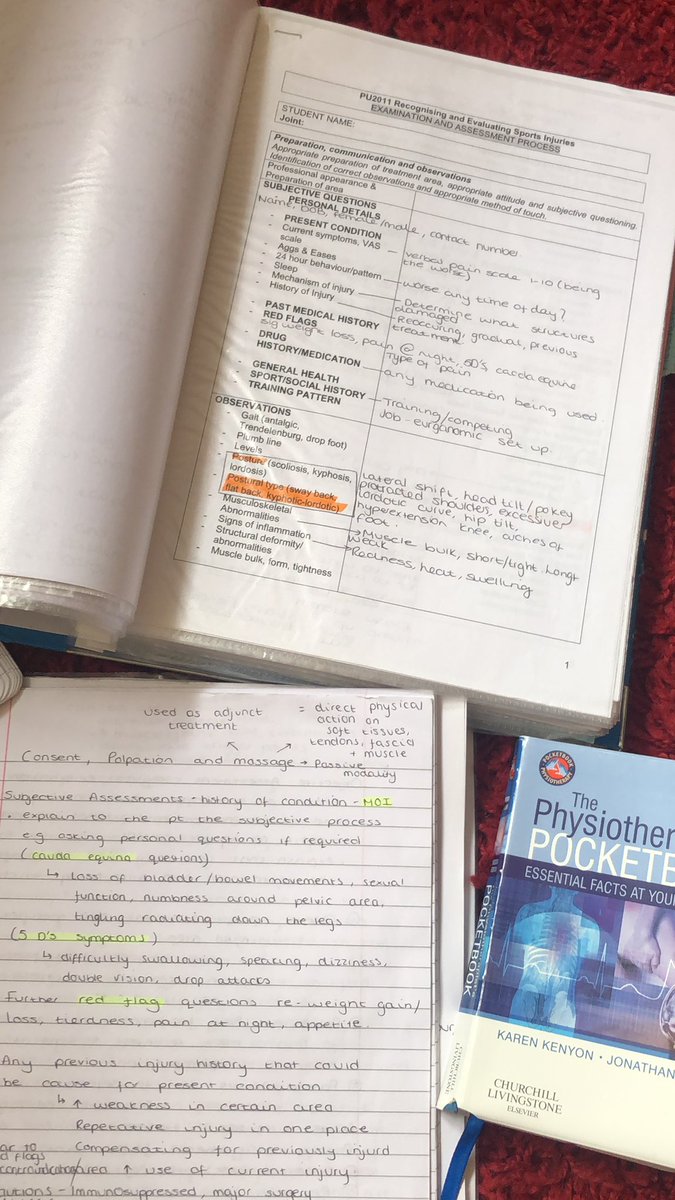 PU2011 Recognising and Evaluating Sports Injuries
EXAMINATION AND ASSESSMENT PROCESS
STUDENT NAME:
Joint:
Preparation, communication and observations
Appropriate preparation of treatment area, appropriate attitude and subjective questioning.
Identification of correct observations and appropriate method of touch.
Professional appearance &
Preparation of area
SUBJECTIVE QUESTIONS
PERSONAL DETAILS
Name, DOB, female/male, contact number.
- PRESENT CONDITION
- Current symptoms, VAS scale
verbal pain scale 1-10 (being the worse)
- Aggs & Eases
- 24 hour behaviour/pattern
worse any time of day?
- Sleep
- Mechanism of injury
Determine what structures damaged
- History of Injury
Reoccuring, gradual, previous treatment
PAST MEDICAL HISTORY
RED FLAGS
sig weight loss, pain @ night, 5D's cauda equine
Type of pain
- DRUG HISTORY/MEDICATION
any medication being used
- GENERAL HEALTH
- SPORT/SOCIAL HISTORY
Training/competing
TRAINING PATTERN
Job - eurganomic set up.
OBSERVATIONS
- Gait (antalgic, Trendelenburg, drop foot)
- Plumb line
- Levels
- Posture (scoliosis, kyphosis, lordosis)
- Postural type (sway back, flat back, kyphotic-lordotic)
Lateral shift, head tilt/pokey
protracted shoulders, excessive
lordotic curve, hip tilt,
hyperextension knee, arches of
foot.
- Musculoskeletal Abnormalities
Muscle bulk, short/tight. Long+ weak
- Signs of inflammation
Redness, heat, swelling
- Structural deformity/abnormalities
- Muscle bulk, form, tightness
1
used as adjunct treatment
= direct physical action on soft tissues, tendons, fascia + muscle
Consent, Palpation and massage → Passive modality
Subjective Assessments - history of condition - MOI
• explain to the pt the subjective process
e.g asking personal questions if required
(cauda equina questions)
↳ loss of bladder/bowel movements, sexual
function, numbness around pelvic area,
tingling radiating down the legs
(5 D's symptoms)
↳ difficultly swallowing, speaking, dizziness,
double vision, drop attacks
Further red flag questions re-weight gain/
loss, tierdness, pain at night, appetite.
Any previous injury history that could
be cause for present condition
↳ ↑ weakness in certain area
Repetative injury in one place
Compensating for previously injurd
area ↑ use of current injury.
- Immunosuppressed, major surgery
POCKETBOOK PHYSIOTHERAPY
The
Physiother
POCKETB
ESSENTIAL FACTS AT YOU
POCKETBOOK
KAREN KENYON • JONATHAN
CHURCHILL
LIVINGSTONE
ELSEVIER